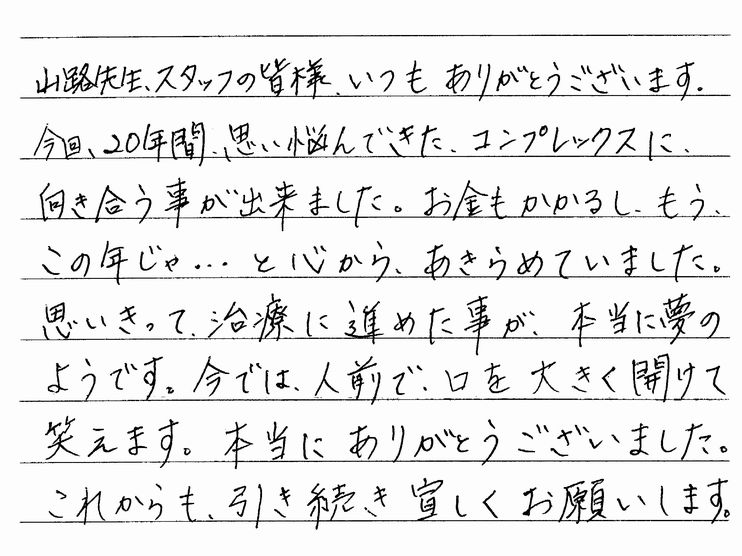 山路先生、スタッフの皆様、いつも ありがとうございます。
今回、20年間、思い悩んできた、コンプレックスに、
向き合う事が出来ました。お金もかかるし、もう、
この年じゃ…と心から、あきらめていました。
思いきって、治療に進めた事が、本当に夢の
ようです。今では、人前で、口を大きく開けて
笑えます。本当にありがとうございました。
これからも、引き続き宜しくお願いします。